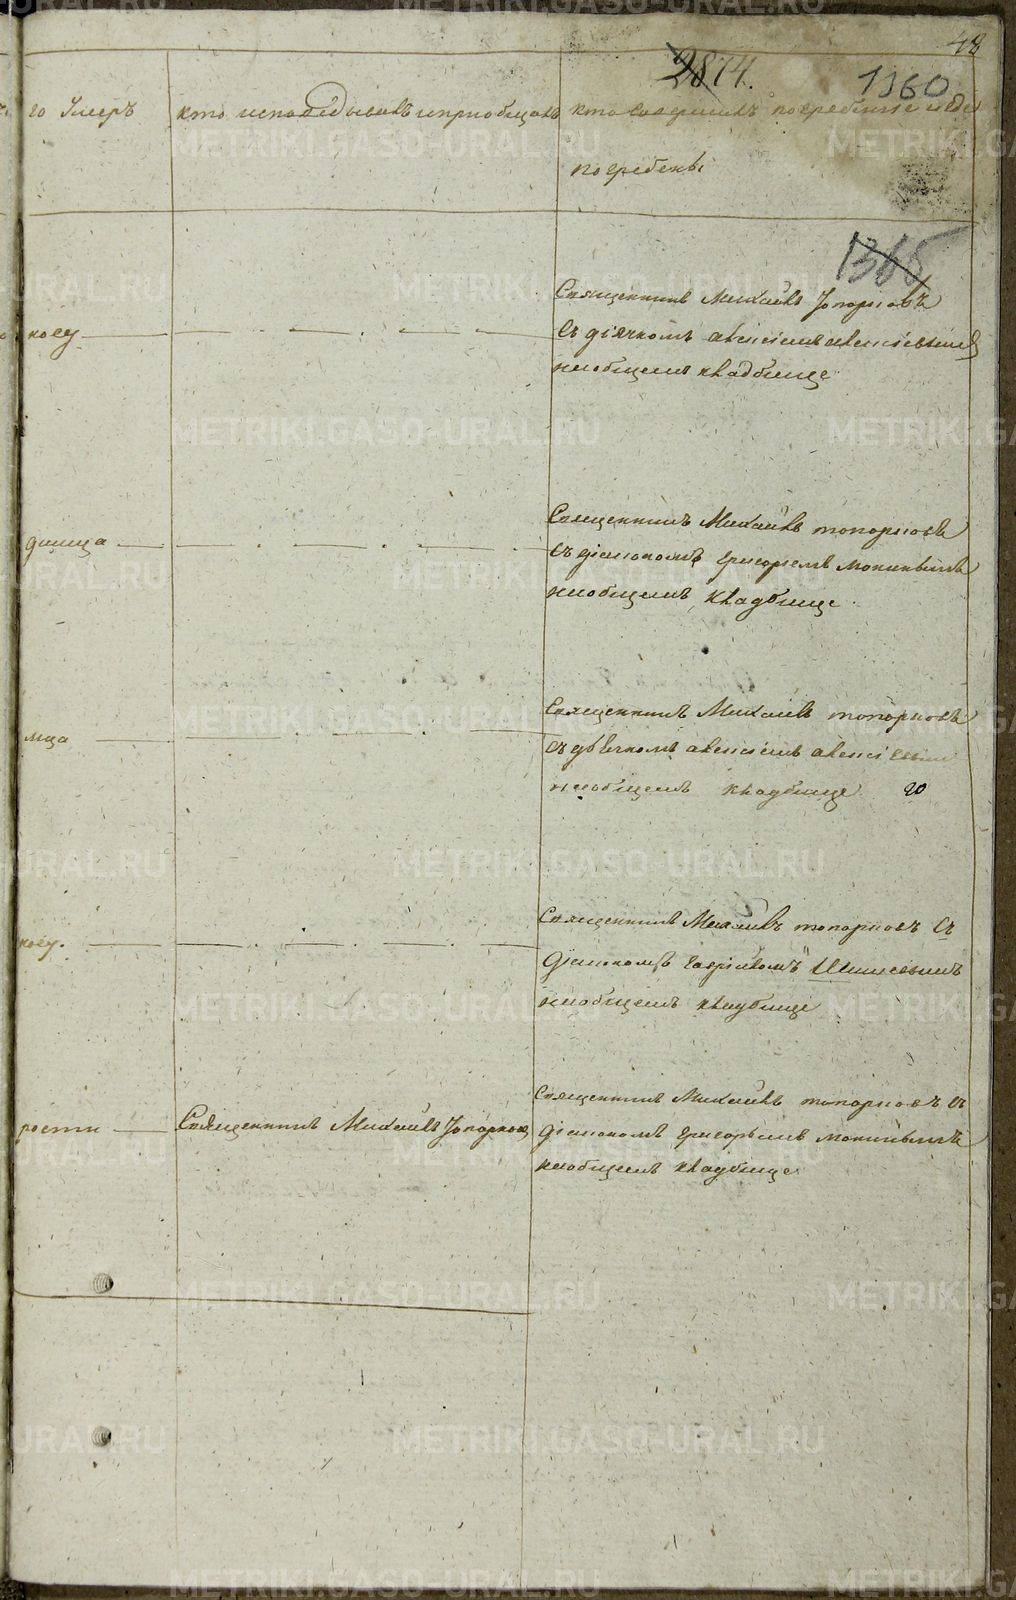 48
2874.
1360
го Умеръ
кто исповѣдывалъ и приобщалъ
кто совершилъ погребение и где
погребены
1365
коеу
Священникъ Михаилъ Топорковъ
съ діячкомъ алексіемъ алексіевымъ
на общемъ кладбище
Священникъ Михаилъ топорковъ
съ діакономъ григориемъ
на общемъ кладбище
Священникъ Михаилъ топорковъ
съ дьячкомъ алексіемъ
на общемъ кладбище
коеу.
Священникъ Михаилъ топорковъ съ
діакономъ
на общемъ кладбище
рости
Священникъ Михаилъ Топорков
Священникъ Михаилъ топорковъ съ
діакономъ григорьемъ
на общемъ кладбище
METRIKI.GASO-URAL.RU